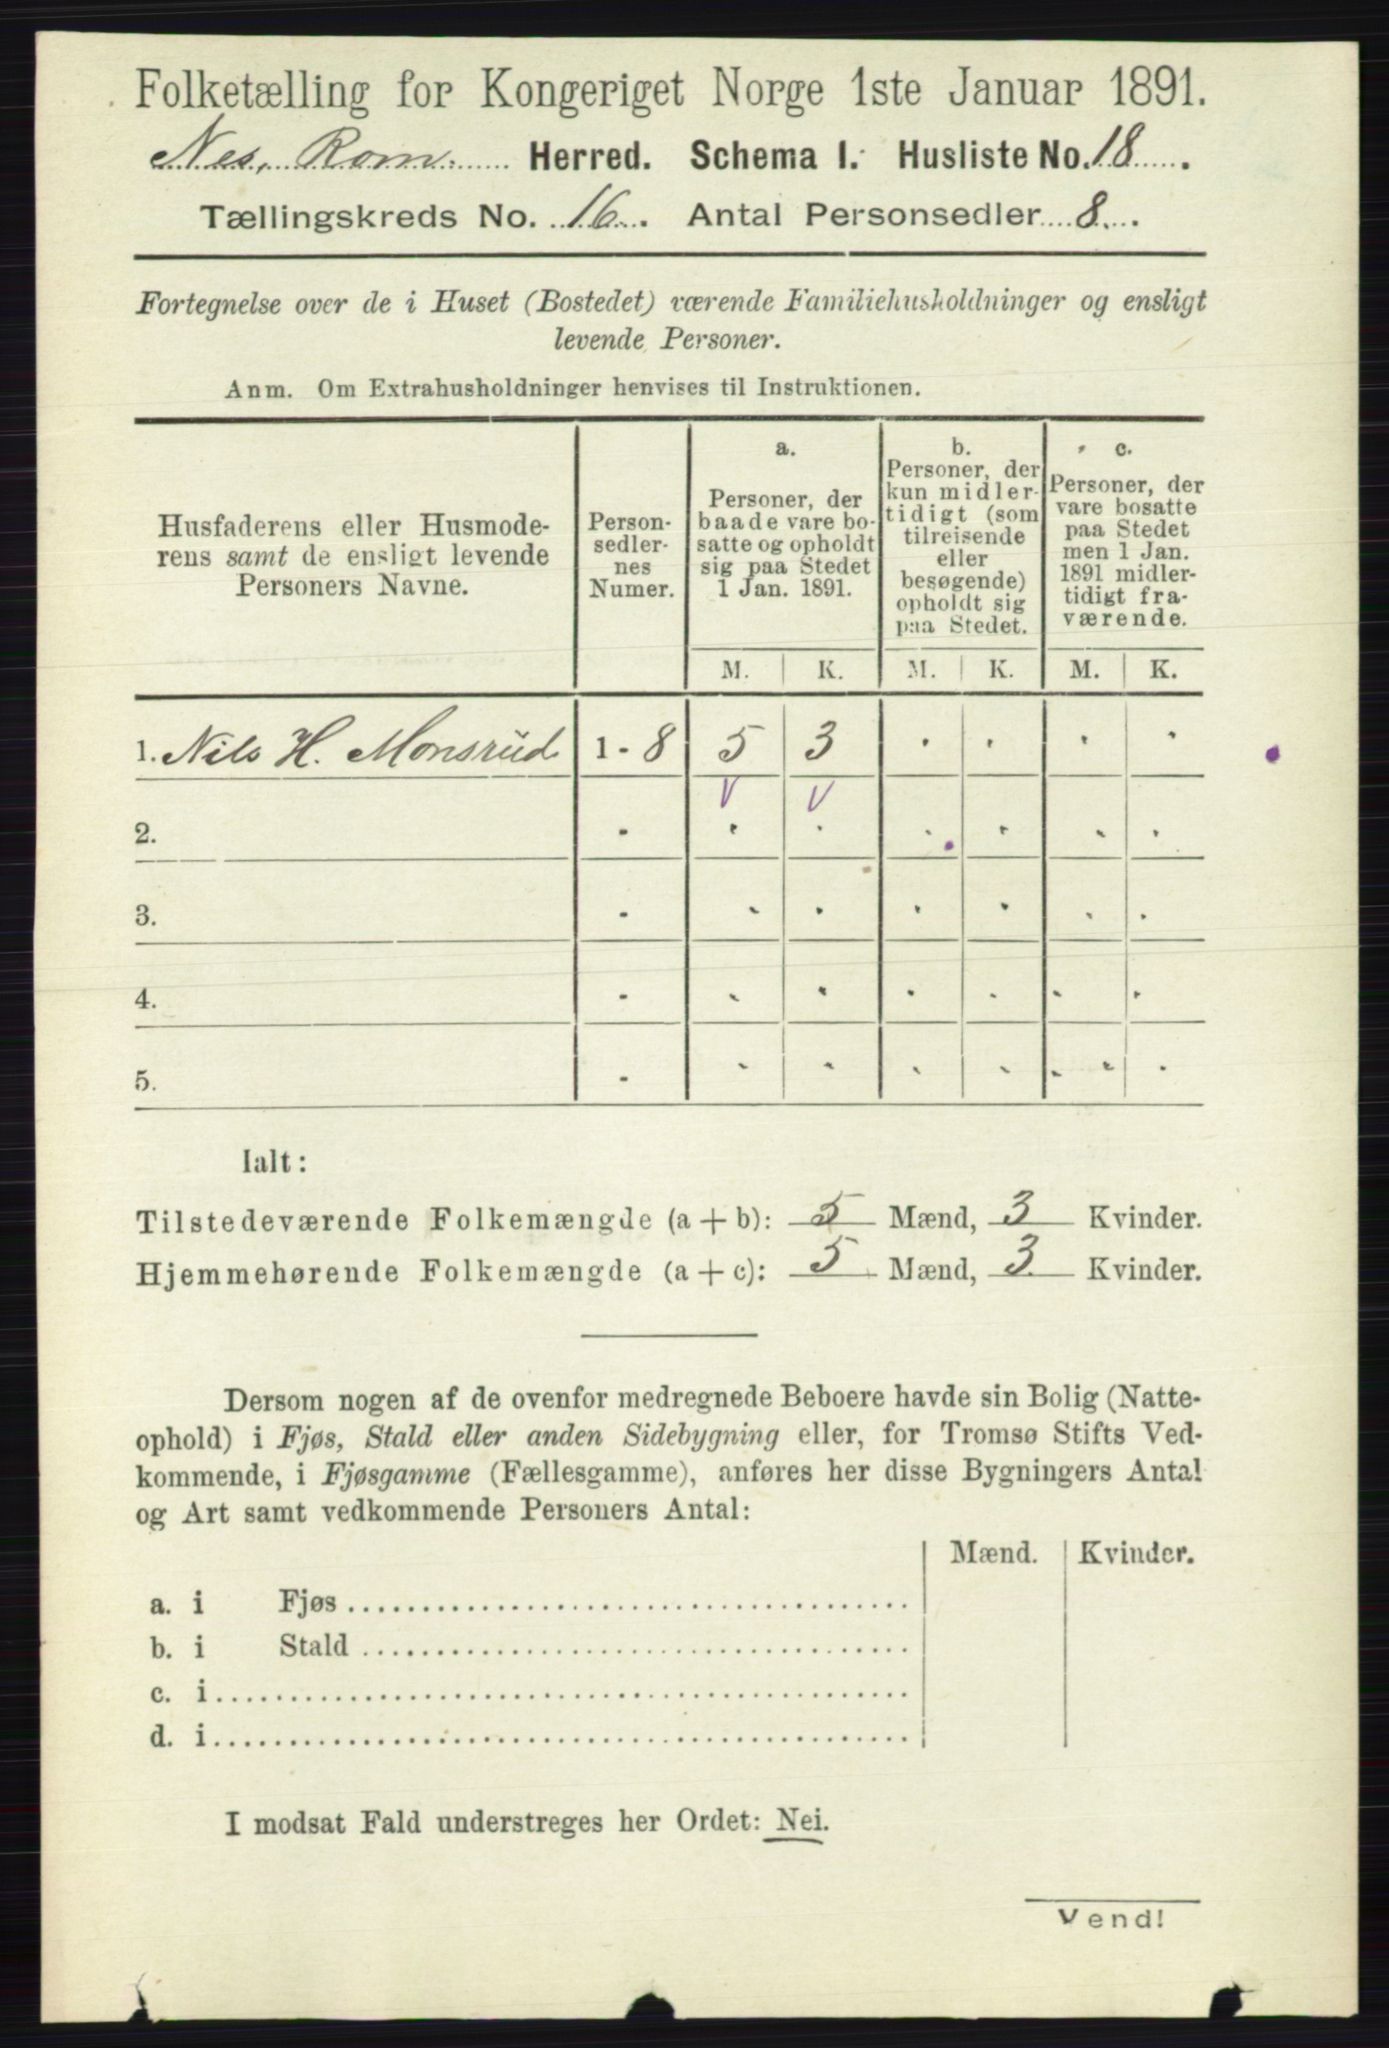 Folketælling for Kongeriget Norge 1ste Januar 1891.
Nes, Rom. Herred. Schema I. Husliste No. 18.
Tællingskreds No. 16. Antal Personsedler 8.
Fortegnelse over de i Huset (Bostedet) værende Familiehusholdninger og ensligt
levende Personer.
Anm. Om Extrahusholdninger henvises til Instruktionen.
Husfaderens eller Husmode-
rens samt de ensligt levende
Personers Navne.
Person-
sedler-
nes
Numer.
a.
Personer, der
baade vare bo-
satte og opholdt
sig paa Stedet
1 Jan. 1891.
b.
Personer, der
kun midler-
tidigt (som
tilreisende
eller
besøgende)
opholdt sig
paa Stedet.
c.
Personer, der
vare bosatte
paa Stedet
men 1 Jan.
1891 midler-
tidigt fra-
værende.
M. K. M. K. M. K.
1. Nils H. Monsrud 1 - 8 5 3 . . . .
v v
2. - . . . . . .
3. - . . . . . .
4. - . . . . . .
5. - . . . . . .
Ialt:
Tilstedeværende Folkemængde (a + b): 5 Mænd, 3 Kvinder.
Hjemmehørende Folkemængde (a + c): 5 Mænd, 3 Kvinder.
Dersom nogen af de ovenfor medregnede Beboere havde sin Bolig (Natte-
ophold) i Fjøs, Stald eller anden Sidebygning eller, for Tromsø Stifts Ved-
kommende, i Fjøsgamme (Fællesgamme), anføres her disse Bygningers Antal
og Art samt vedkommende Personers Antal:
Mænd. Kvinder.
a. i Fjøs
b. i Stald
c. i
d. i
I modsat Fald understreges her Ordet: Nei.
Vend!